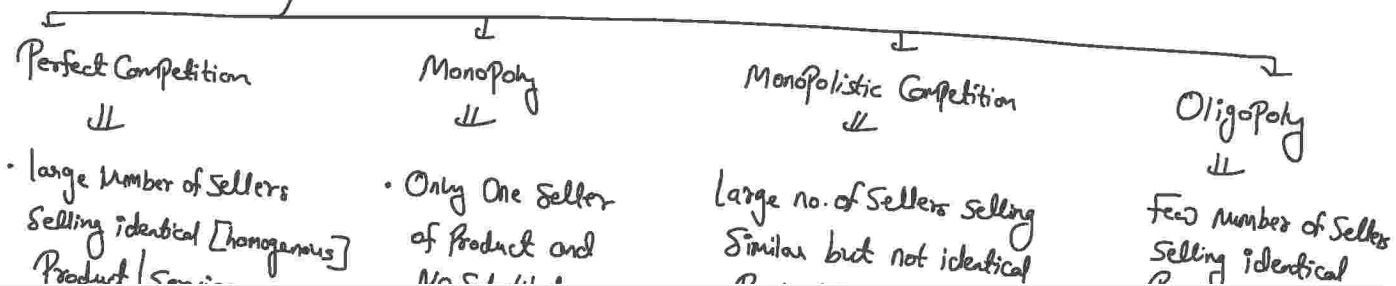 Perfect Competition
• large number of sellers
Selling identical [homogenous]
Product / Service
Monopoly
• Only One Seller
of Product and
No
Monopolistic Competition
Large no. of Sellers selling
Similar but not identical
Oligopoly
Few number of Sellers
Selling identical